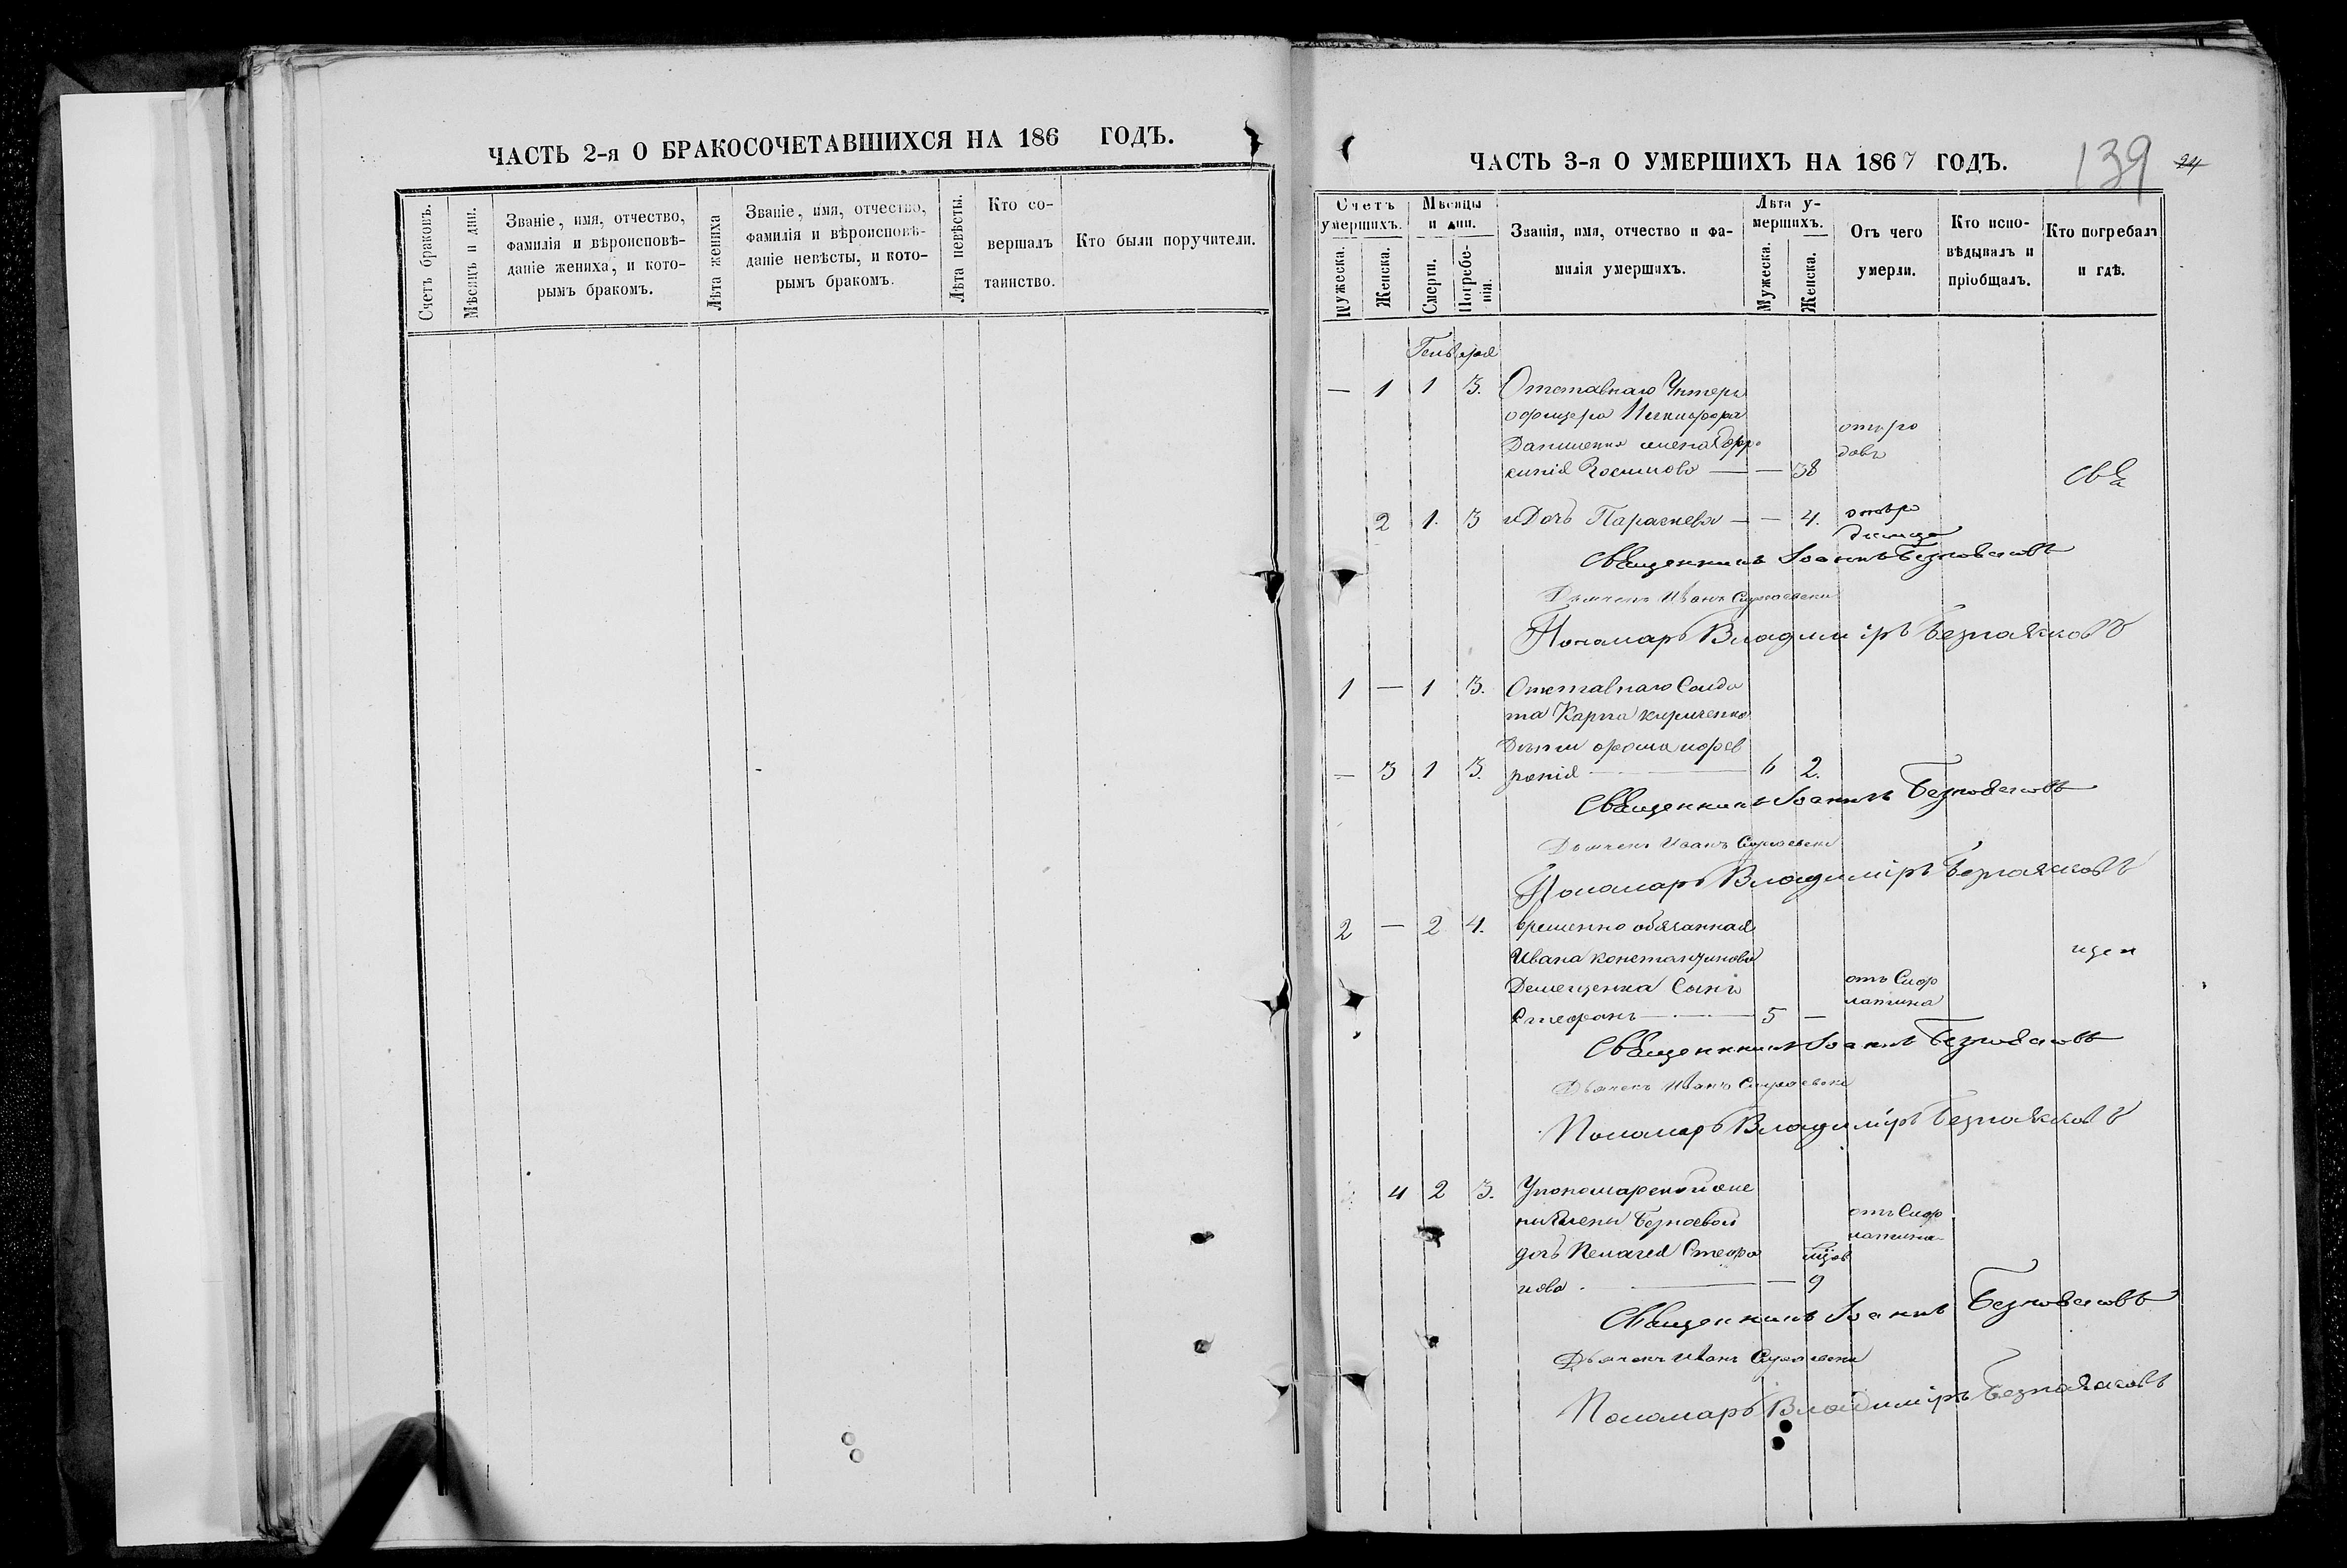 ЧАСТЬ 2-я О БРАКОСОЧЕТАВШИХСЯ НА 186 ГОДЪ.
Счетъ браковъ.
Мѣсяцъ и дни.
Званіе, имя, отчество,
фамилія и вѣроисповѣ-
даніе жениха, и кото-
рымъ бракомъ.
Лѣта жениха
Званіе, имя, отчество,
фамилія и вѣроисповѣ-
даніе невѣсты, и кото-
рымъ бракомъ.
Лѣта невѣсты.
Кто со-
вершалъ
таинство.
Кто были поручители.
ЧАСТЬ 3-я О УМЕРШИХЪ НА 1867 ГОДЪ.
139
24
Счетъ
умершихъ.
Мужеска.
Женска.
Мѣсяцы
и дни.
Смерти.
Погребе-
нія.
Званія, имя, отчество и фа-
милія умершихъ.
Лѣта у-
мершихъ.
Мужеска.
Женска.
Отъ чего
умерли.
Кто испо-
вѣдывалъ и
пріобщалъ.
Кто погребалъ
и гдѣ.
Генваря
— 1 1 3. Отставнаго Унтеръ
офицера Никифора
отъ ро
довъ
— 38
2 1. 3 и Дочь Параскева — — 4. отъ ро
Священникъ Іоаннъ Безпояковъ
Дьячекъ Иванъ
Пономарь Владиміръ Безпояковъ
1 — 1 3. Отставнаго Солда
та Карпа Кириченко
Дѣти
— 3 1 3. 6 2.
Священникъ Іоаннъ Безпояковъ
Дьячекъ Иванъ
Пономарь Владиміръ Безпояковъ
2 — 2 4. временно обязаннаго
Ивана Константинова
Сынъ отъ Скор
латина
Стефанъ — 5 —
Священникъ Іоаннъ Безпояковъ
Дьячекъ Иванъ
Пономарь Владиміръ Безпояковъ
4 2 3. У пономарской
отъ Скор
латина
дочь Пелагея Стефа
нова — 9
Священникъ Іоаннъ Безпояковъ
Дьячекъ Иванъ
Пономарь Владиміръ Безпояковъ